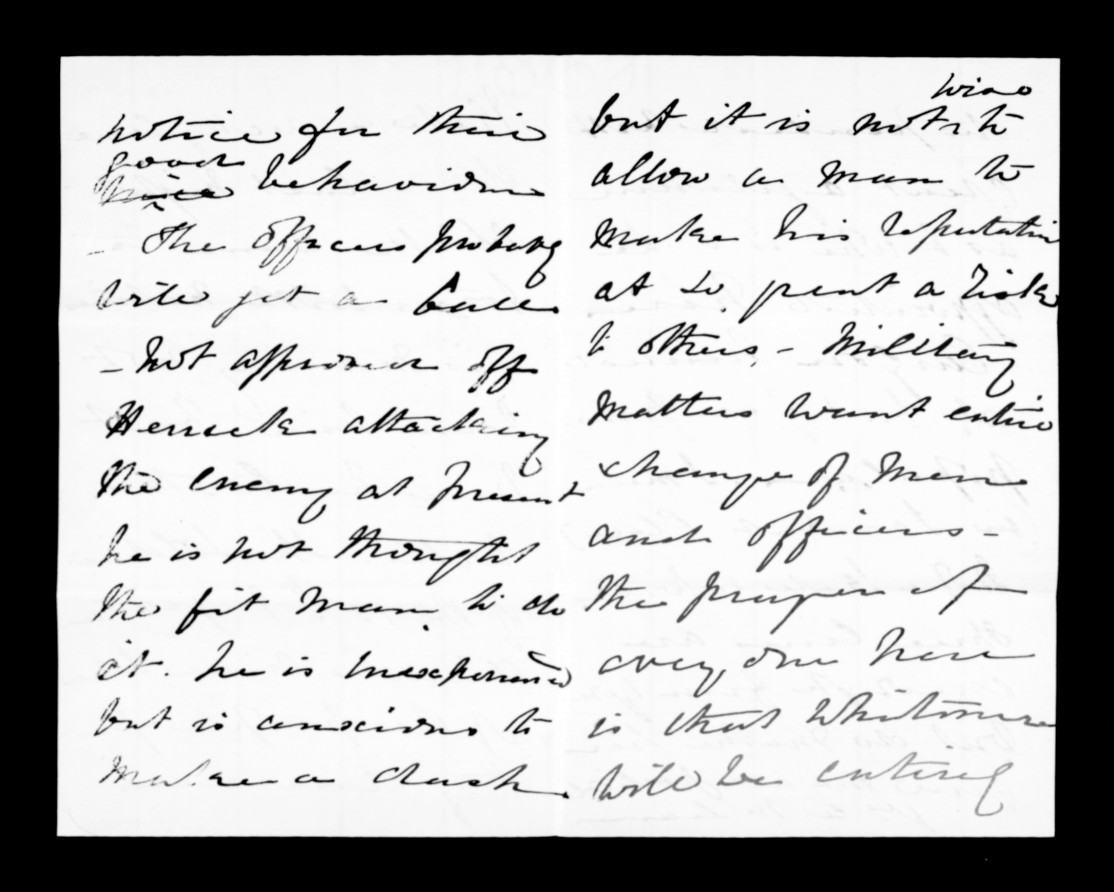 notice for their
good
nice behaviour
- The officers probably
will get a
- Not approved off
Herrick attacking
the enemy at present
he is not thought
the fit man to do
it. he is inexperienced
but is anxious to
make a dash.
wise
but it is not to
allow a man to
make his reputation
at so great a risk
to others. - Military
matters want entire
change of men
and officers -
the prayer of
every one here
is that Whitmore
will be entirely